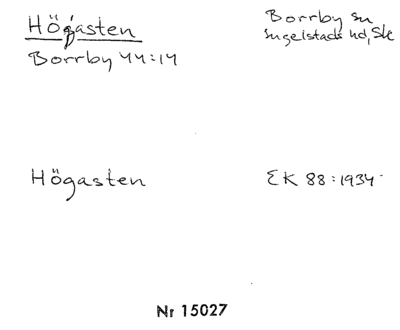 Högasten
Borrby sn
Borrby 44:14
Ingelstads hd, Sk
Högasten
EK 88:1934
Nr 15027